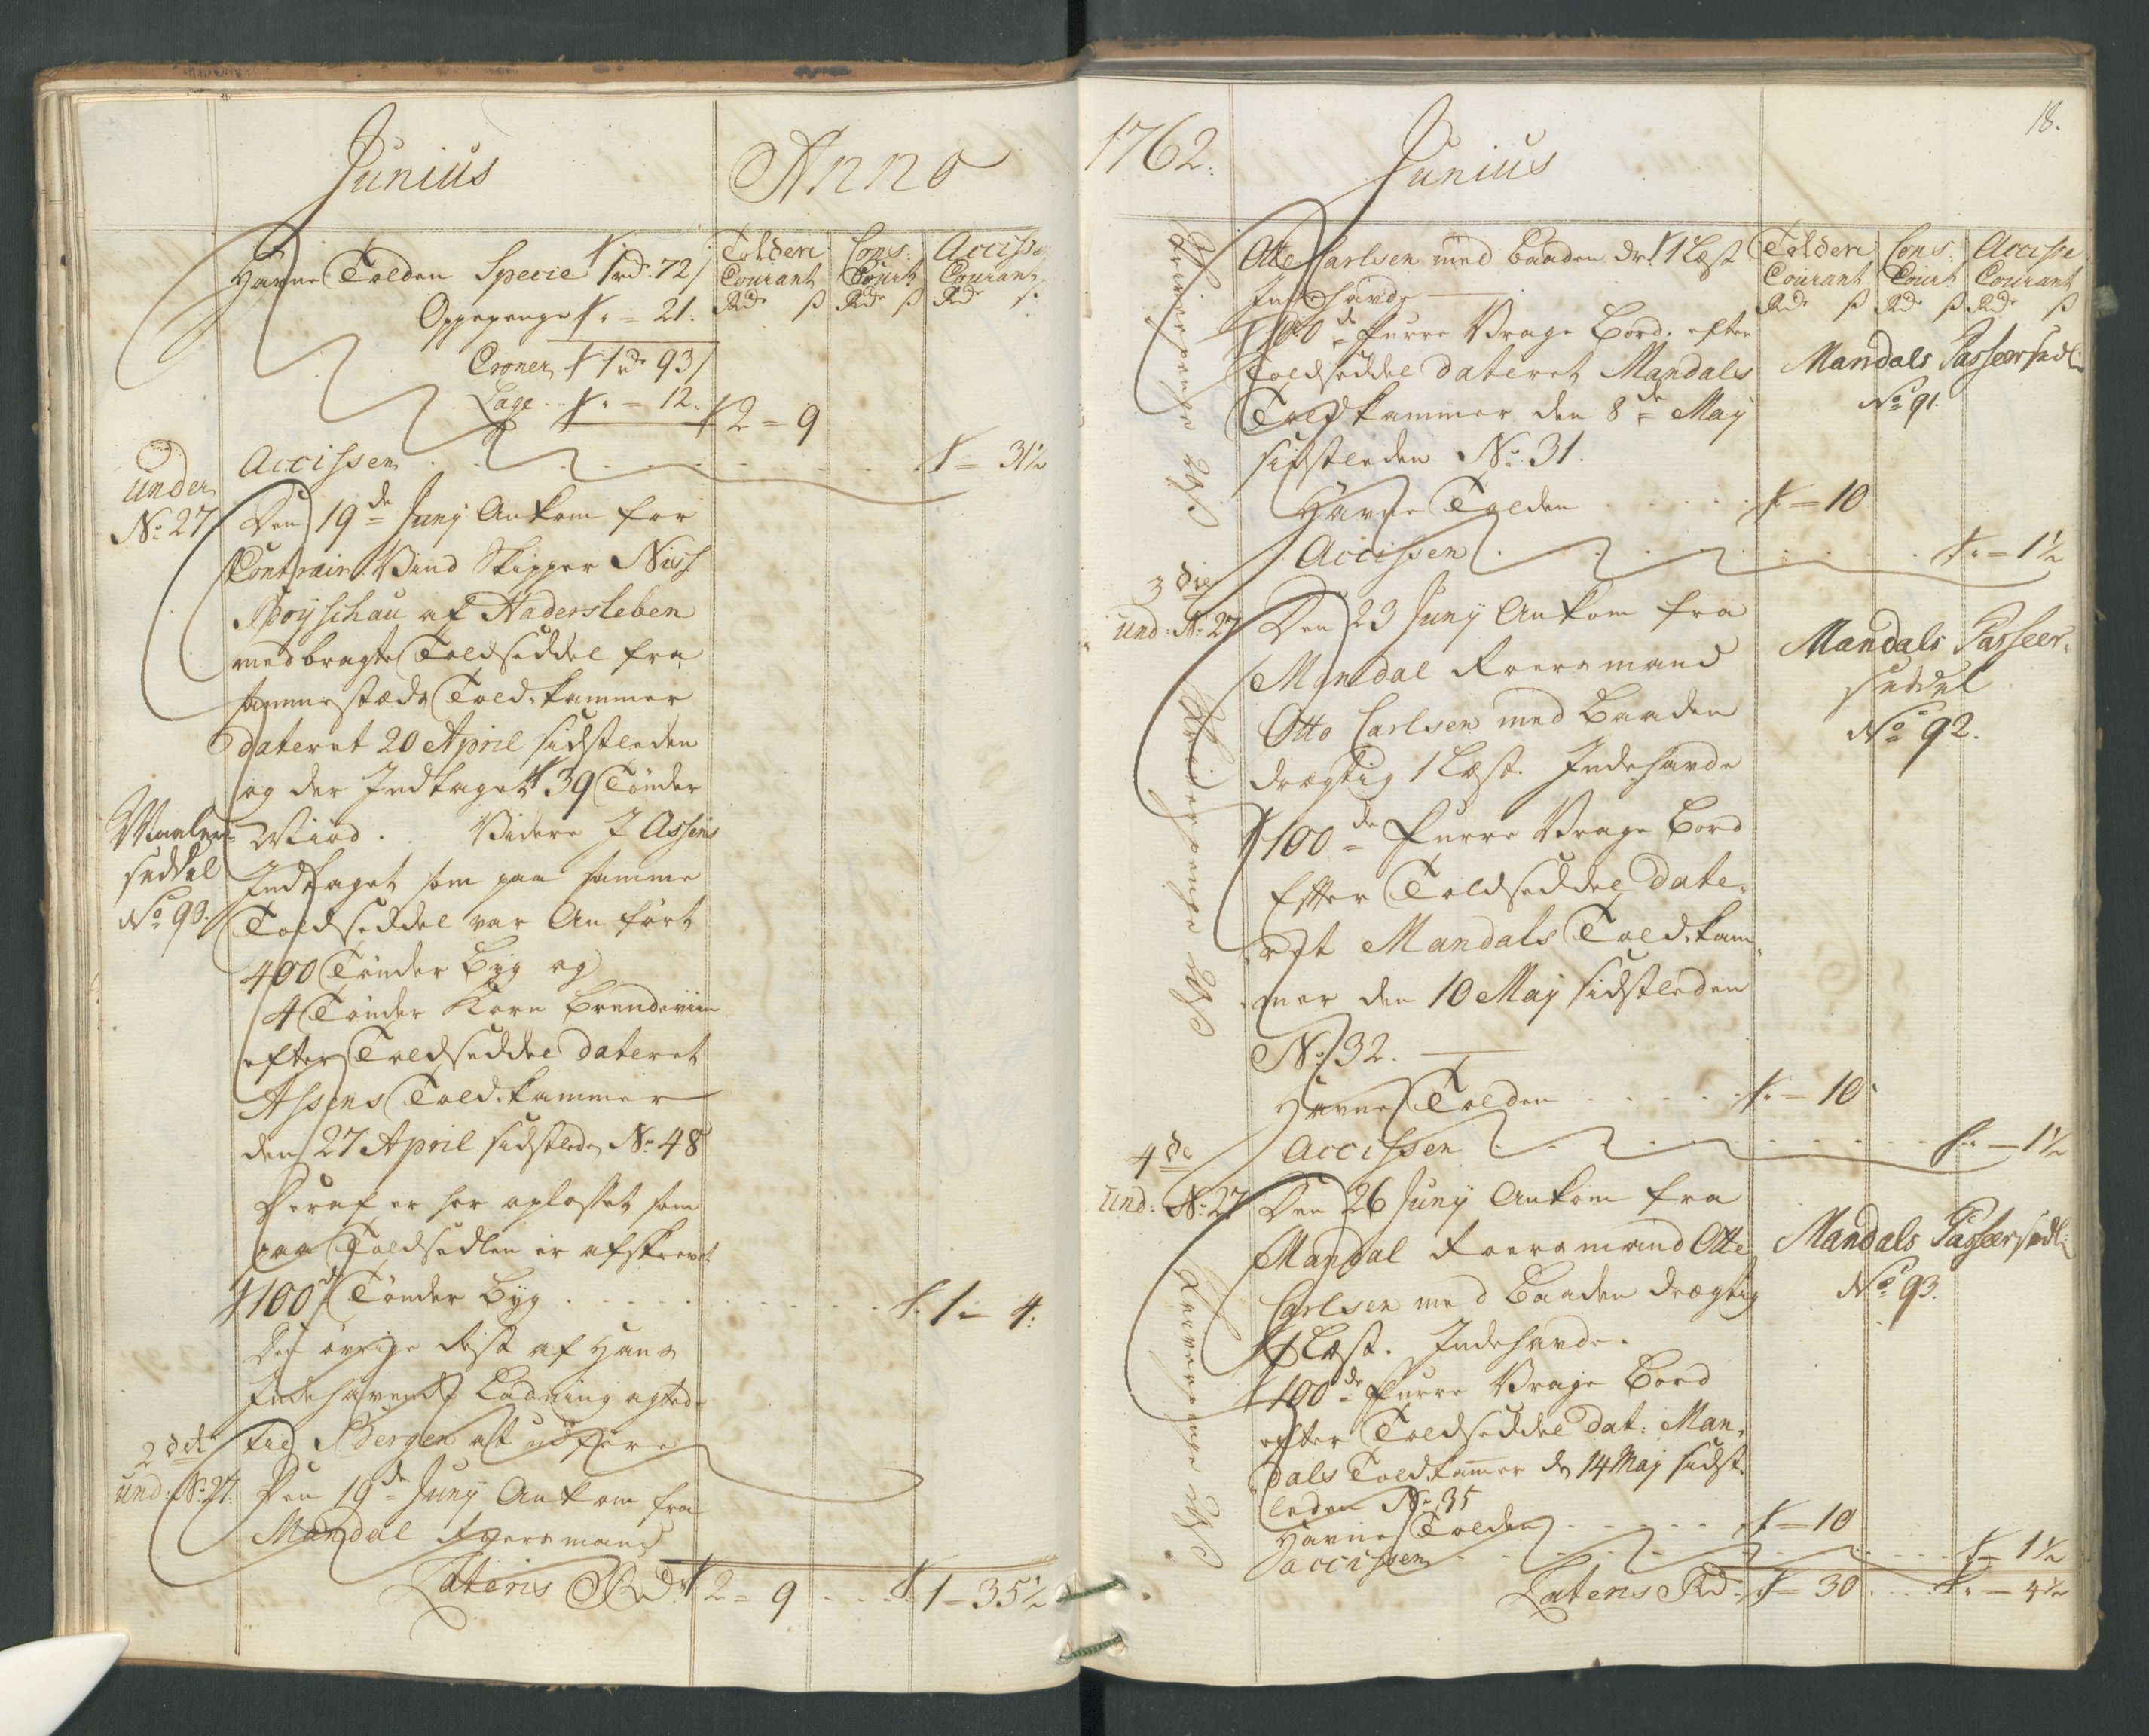 Junius Anno
Tolden Cons: Accisse
Courant Cour: Courant
Rdr ß Rdr ß Rdr ß
Havne Tolden Specie 1 rd. 72
Oppepenge - 21.
Croner 1 rdr 93
Lage - 12. 2 = 9
Accissen - 31½
under
No. 27
Den 19de Junij Ankom for
Contrair Vind Skipper Niss
Boyschau af Hadersleben
medbragte Toldseddel fra
sammestæds Told-kammer
dateret 20 April sidstleden
og der Indtaget 39 Tønder
Miød. Videre I Assens
Maaler-
seddel
No. 90.
Indtaget som paa samme
Toldseddel var Anført
400 Tønder Byg og
4 Tønder Korn Brendeviin
efter Toldseddel dateret
Assens Told-kammer
den 27 April sidstled. No. 48
Deraf er her oplosset som
paa Toldsedlen er afskrevet
100de Tønder Byg 1 - 4.
Den øvrige Rest af Hans
Indehavende Ladning agted-
til Bergen at udføre
2det
und: No. 27.
Den 19de Junij Ankom fra
Mandal Roersmand
Lateris Rdr 2 = 9 1 - 35½

1762. Junius 18.
Tolden Cons: Accisse
Courant Cour: Courant
Rdr ß Rdr ß Rdr ß
Otte Carlsen med Baaden dr. 1 Læst
Indehavde
100de Furre Vrage Bord. efter
Toldseddel dateret Mandals
Toldkammer den 8de May
sidstleden No. 31.
Mandals Passeersedl
No. 91.
Havne Tolden - 10
Accissen - 1½
3die
und: No. 27
Den 23 Junij Ankom fra
Mandal Roersmand
Otto Carlsen med Baaden
drægtig 1 Læst. Indehavde
100de Furre Vrage Bord
Efter Toldseddel date-
ret Mandals Told-kam-
mer den 10 May sidstleden
No. 32.
Mandals Passeer-
seddel
No. 92.
Havne Tolden - 10
Accissen - 1½
4de
und: No. 27
Den 26 Junij Ankom fra
Mandal Roersmand Otte
Carlsen med Baaden drægtig
1 Læst. Indehavde.
100de Furre Vrage Bord
efter Toldseddel dat: Man-
dals Toldkam̄er d. 14 May sidst-
leden No. 35
Mandals Passeersedl:
No. 93.
Havne Tolden - 10
Accissen - 1½
Lateris Rdr - 30 - 4½